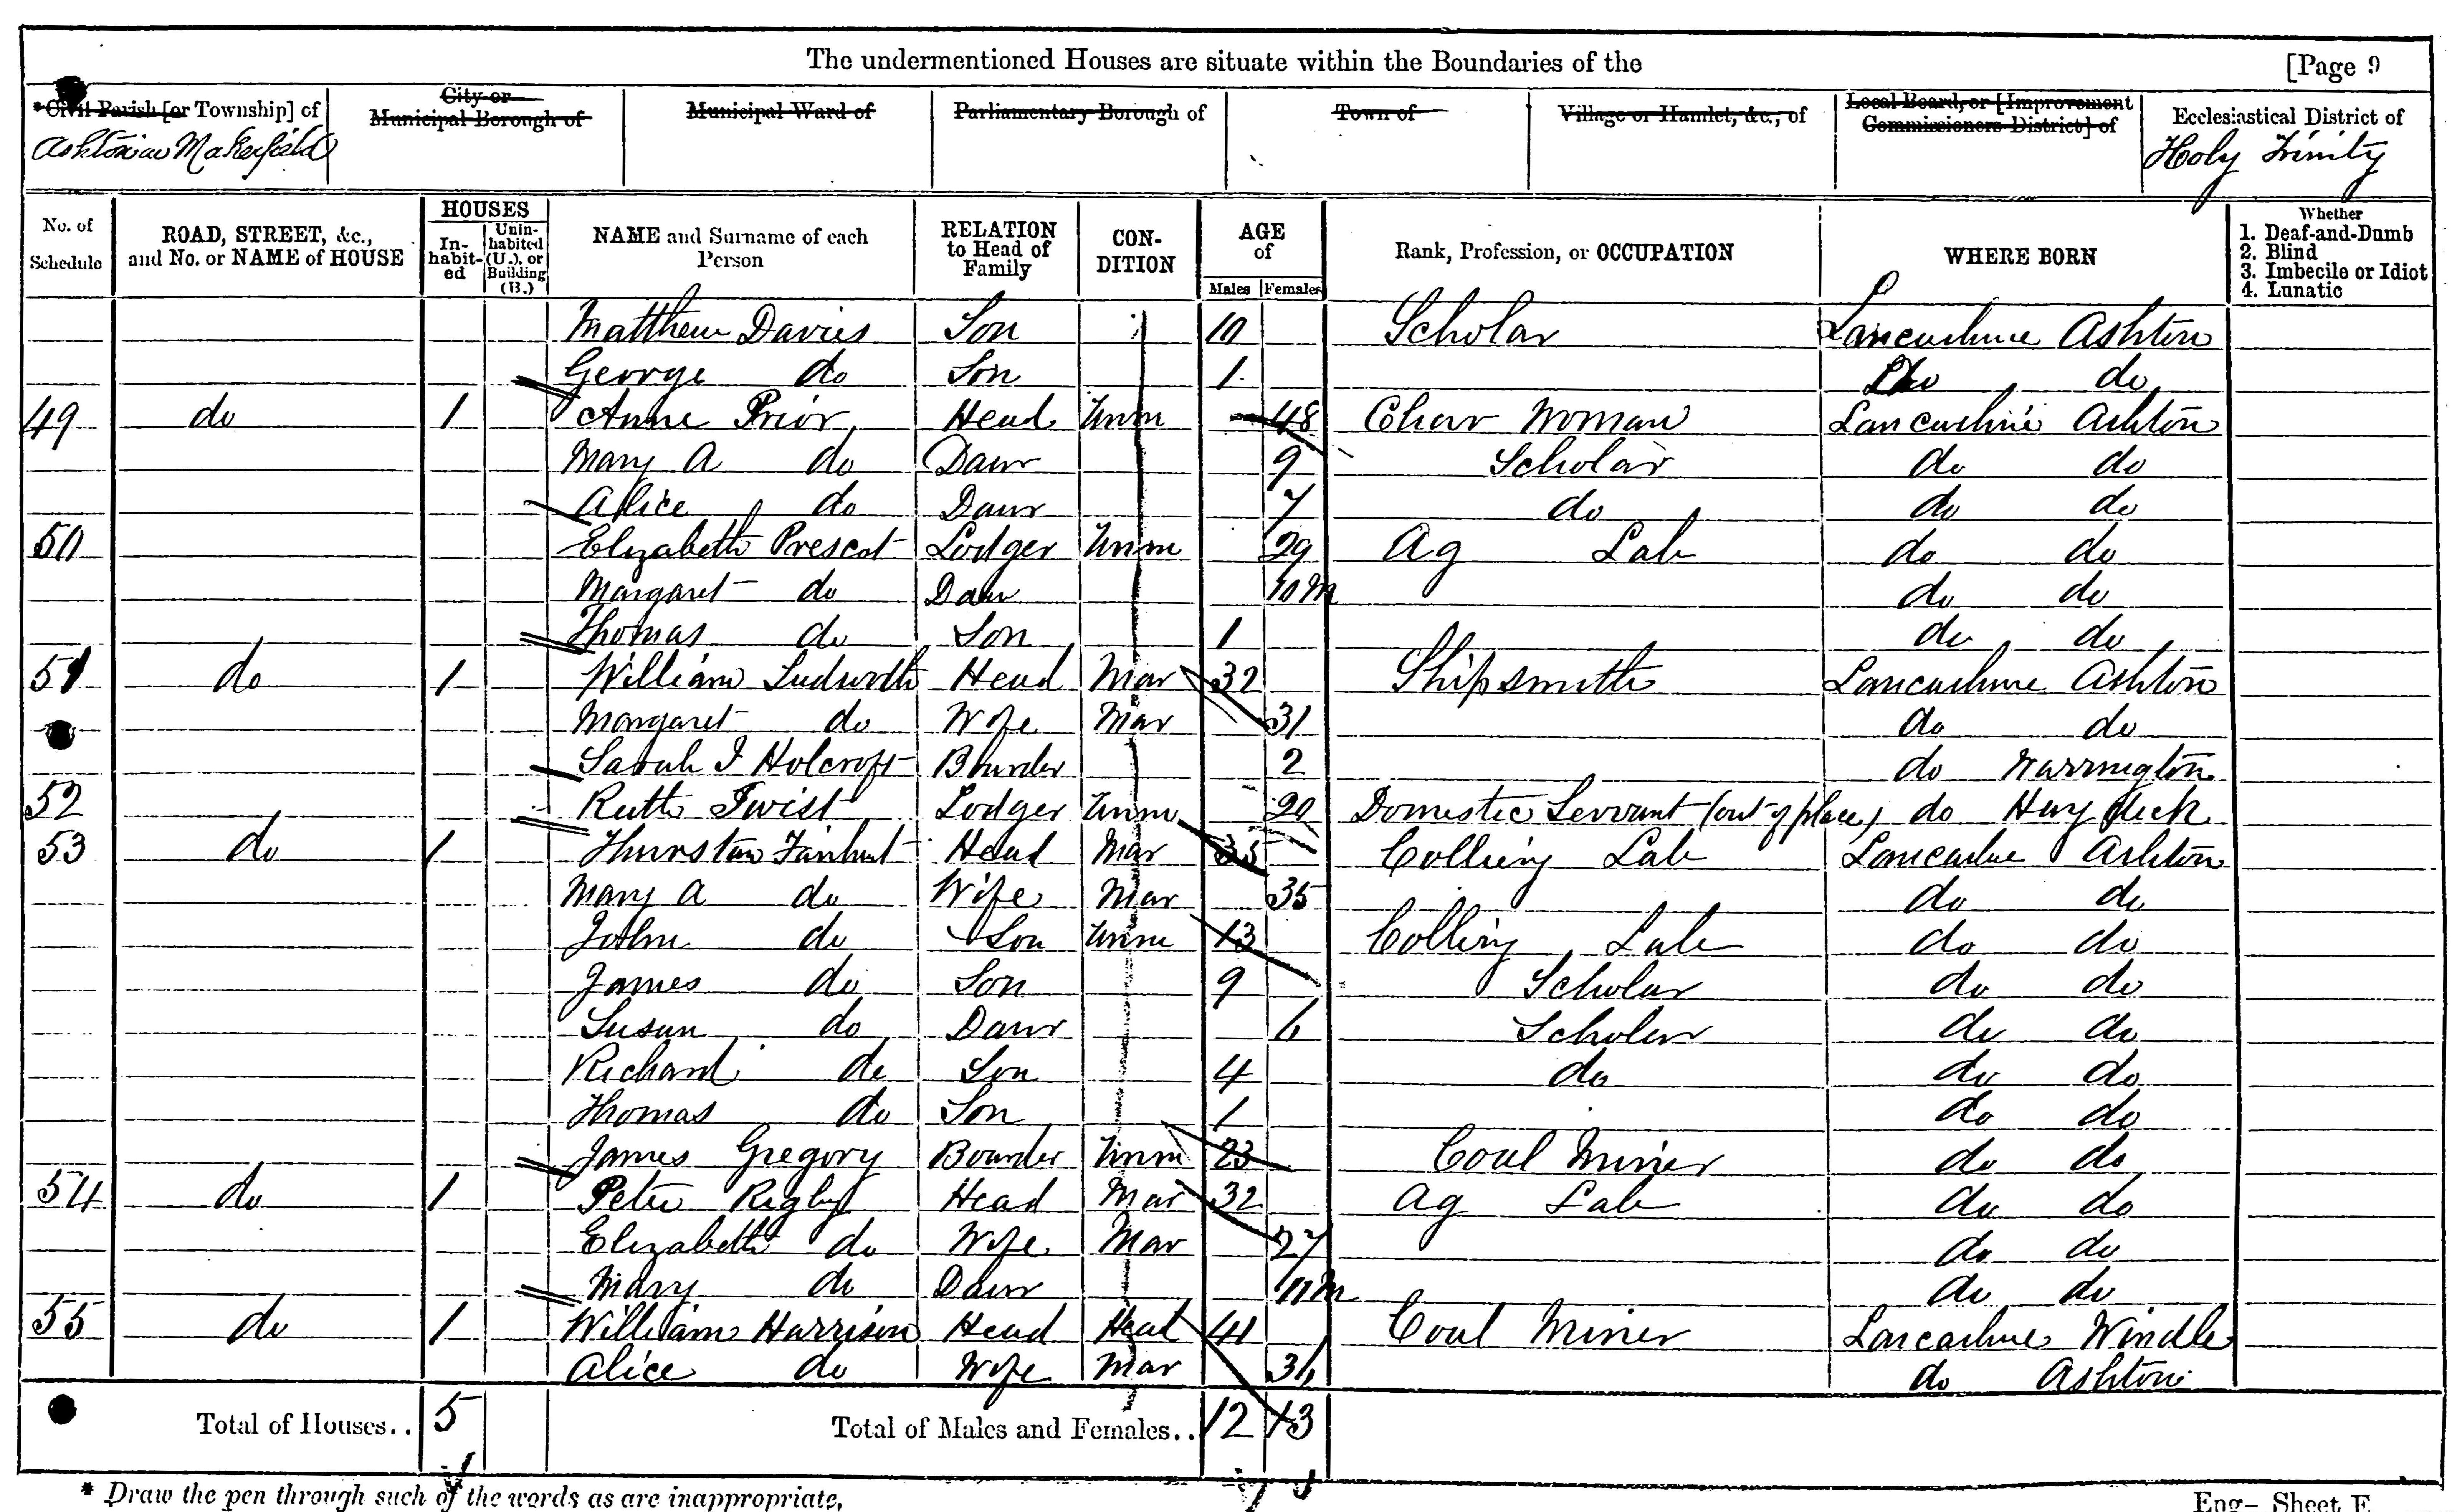 The undermentioned Houses are situate within the Boundaries of the [Page 9
*Civil Parish [or Township] of City or Municipal Borough of Municipal Ward of Parliamentary Borough of Town of Village or Hamlet, &c., of Local Board, or [Improvement Commissioners District] of Ecclesiastical District of
Ashton in Makerfield Holy Trinity
No. of Schedule ROAD, STREET, &c., and No. or NAME of HOUSE HOUSES Inhabited Uninhabited (U.), or Building (B.) NAME and Surname of each Person RELATION to Head of Family CONDITION AGE of Males Females Rank, Profession, or OCCUPATION WHERE BORN Whether 1. Deaf-and-Dumb 2. Blind 3. Imbecile or Idiot 4. Lunatic
Matthew Davies Son 10 Scholar Lancashire Ashton
George do Son 1 Do do
49 do 1 Anne Prior Head Unm 48 Char Woman Lancashire Ashton
Mary A do Daur 9 Scholar do do
Alice do Daur 7 do do do
50 Elizabeth Prescot Lodger Unm 29 Ag Lab do do
Margaret do Daur 10 M do do
Thomas do Son 1 do do
51 do 1 William Ludworth Head Mar 32 Shipsmith Lancashire Ashton
Margaret do Wife Mar 31 do do
Sarah J Holcroft Bourder 2 do Warrington
52 Ruth Twist Lodger Unm 20 Domestic Servant (out of place) do Haydock
53 do 1 Thurstan Fairhurst Head Mar 35 Colliery Lab Lancashire Ashton
Mary A do Wife Mar 35 do do
John do Son Unm 13 Colliery Lab do do
James do Son 9 Scholar do do
Susan do Daur 6 Scholar do do
Richard do Son 4 do do do
Thomas do Son 1 do do
James Gregory Bourder Unm 23 Coal Miner do do
54 do 1 Peter Rigby Head Mar 32 Ag Lab do do
Elizabeth do Wife Mar 27 do do
Mary do Daur 11 M do do
55 do 1 William Harrison Head Head 41 Coal Miner Lancashire Windle
Alice do Wife Mar 36 do Ashton
Total of Houses.. 5 Total of Males and Females.. 12 13
* Draw the pen through such of the words as are inappropriate,
Eng– Sheet E